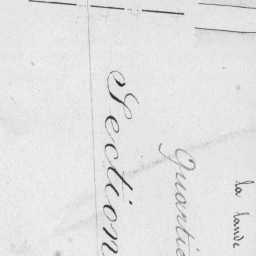 la lande
Quartie
Section